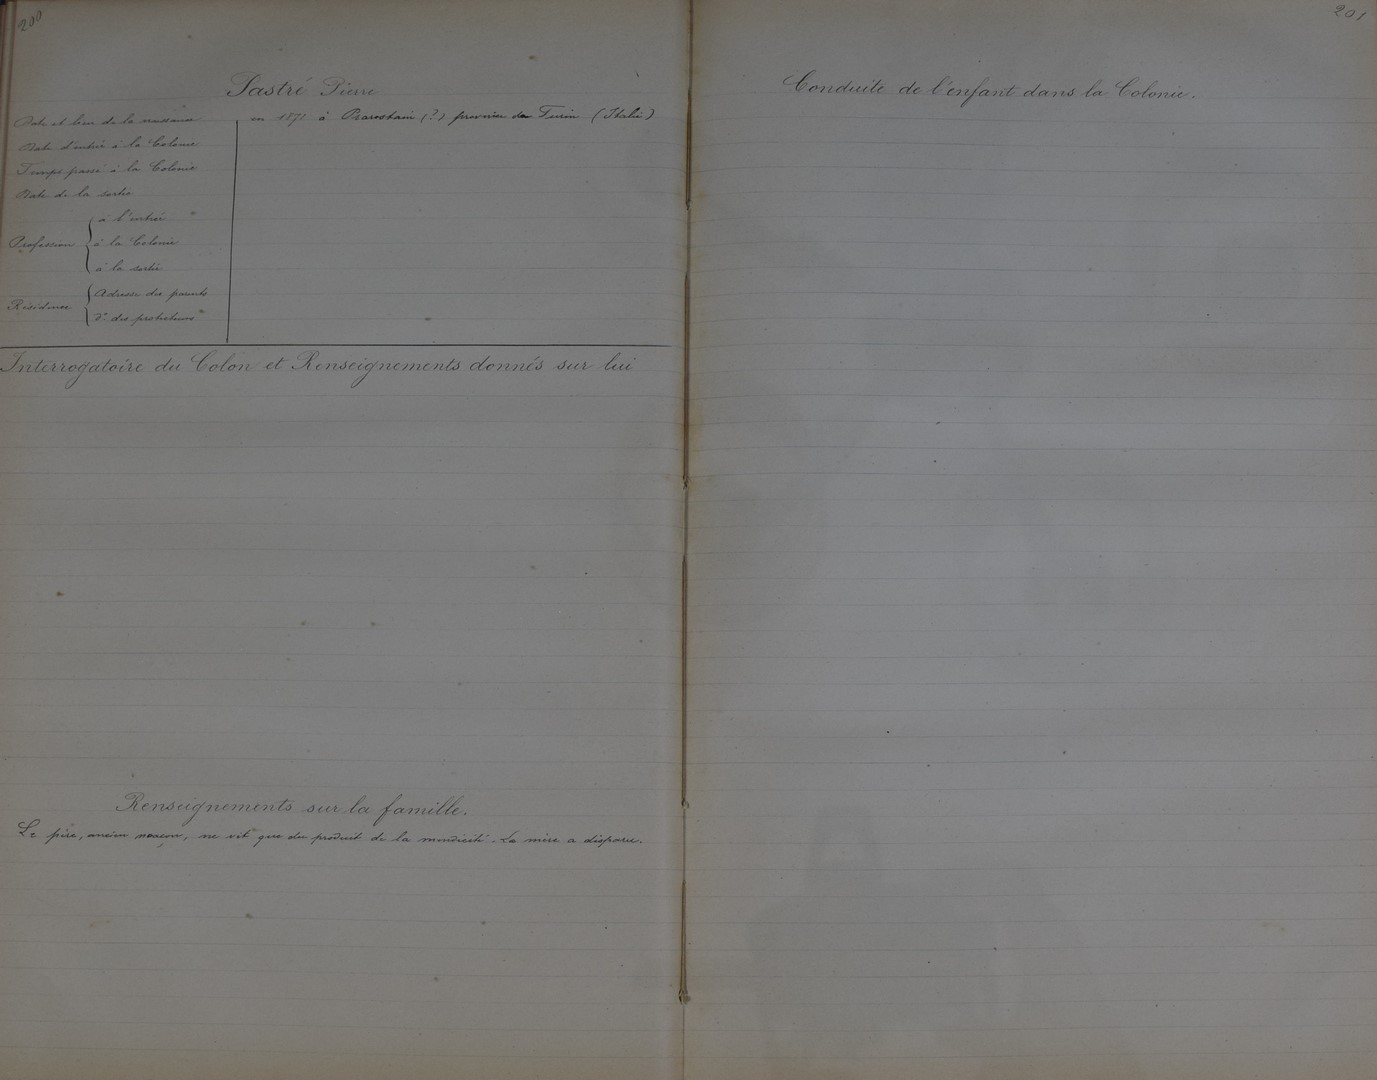 200
Sastré Pierre
Date et lieu de la naissance en 1871 à Prarostain (?) province de Turin (Italie)
Date d'entrée à la Colonie
Temps passé à la Colonie
Date de la sortie
Profession
à l'entrée
à la Colonie
à la sortie
Résidence
Adresse des parents
do des protecteurs
Interrogatoire du Colon et Renseignements donnés sur lui
Renseignements sur la famille.
Le père, ancien maçon, ne vit que du produit de la mendicité. La mère a disparu.
201
Conduite de l'enfant dans la Colonie.